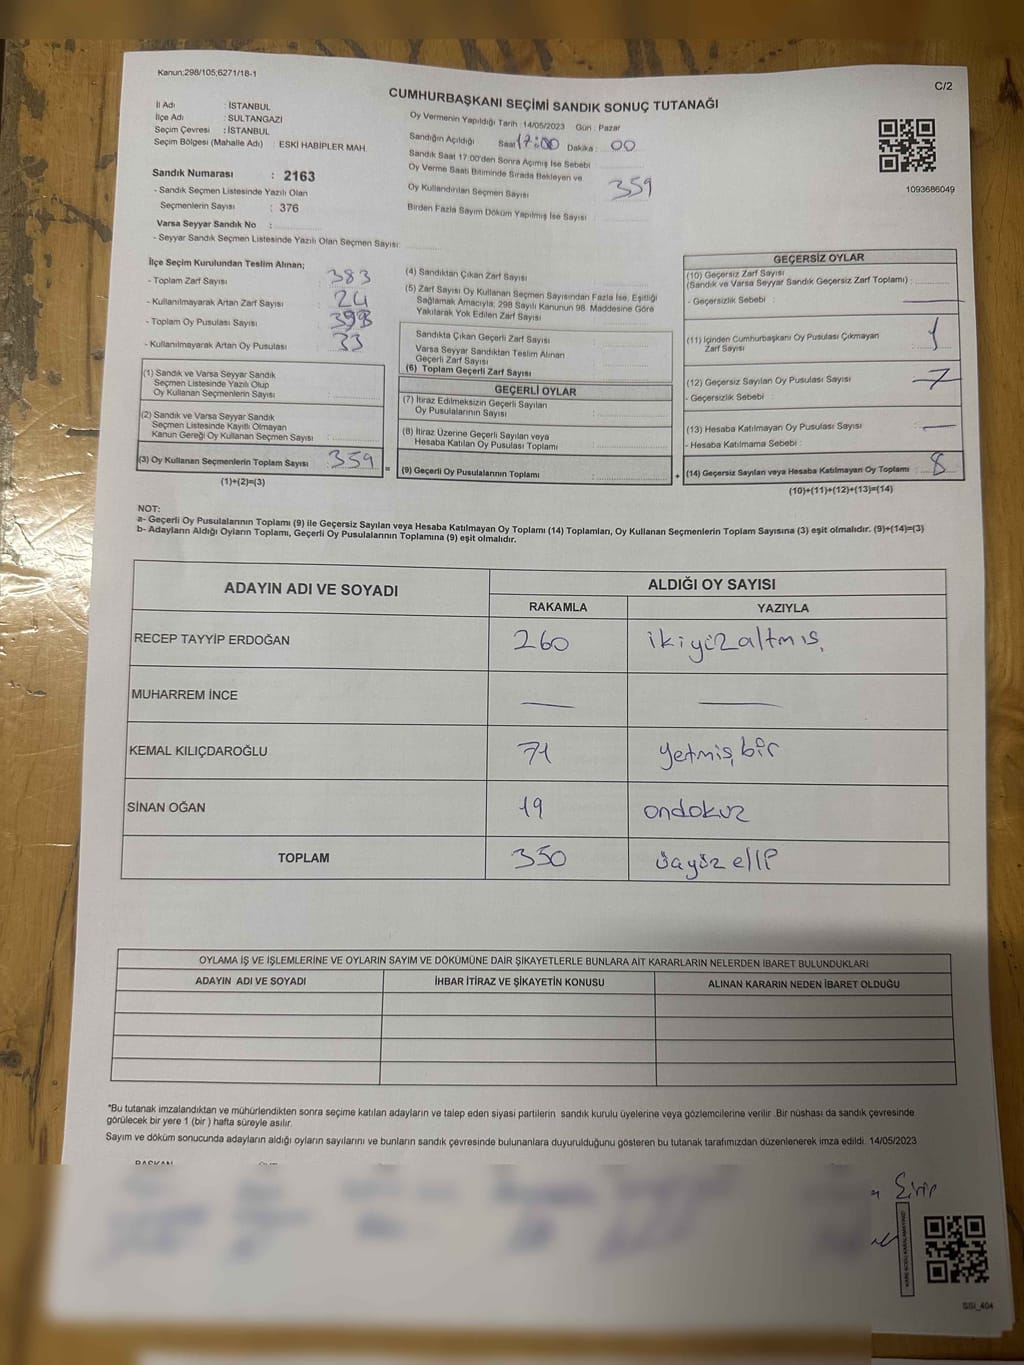 Kanun;298/105;6271/18-1
C/2
CUMHURBAŞKANI SEÇİMİ SANDIK SONUÇ TUTANAĞI
İl Adı : İSTANBUL
İlçe Adı : SULTANGAZİ
Seçim Çevresi : İSTANBUL
Seçim Bölgesi (Mahalle Adı) : ESKİ HABİPLER MAH.
Sandık Numarası : 2163
- Sandık Seçmen Listesinde Yazılı Olan
Seçmenlerin Sayısı : 376
Varsa Seyyar Sandık No :
- Seyyar Sandık Seçmen Listesinde Yazılı Olan Seçmen Sayısı:
Oy Vermenin Yapıldığı Tarih : 14/05/2023 Gün : Pazar
Sandığın Açıldığı Saat 17:00 Dakika : 00
Sandık Saat 17:00'den Sonra Açımış İse Sebebi
Oy Verme Saati Bitiminde Sırada Bekleyen ve
Oy Kullandırılan Seçmen Sayısı 359
Birden Fazla Sayım Döküm Yapılmış İse Sayısı
1093686049
İlçe Seçim Kurulundan Teslim Alınan;
- Toplam Zarf Sayısı : 383
- Kullanılmayarak Artan Zarf Sayısı : 24
- Toplam Oy Pusulası Sayısı :
- Kullanılmayarak Artan Oy Pusulası : 33
(1) Sandık ve Varsa Seyyar Sandık
Seçmen Listesinde Yazılı Olup
Oy Kullanan Seçmenlerin Sayısı :
(2) Sandık ve Varsa Seyyar Sandık
Seçmen Listesinde Kayıtlı Olmayan
Kanun Gereği Oy Kullanan Seçmen Sayısı :
(3) Oy Kullanan Seçmenlerin Toplam Sayısı : 359
(1)+(2)=(3)
=
(4) Sandıktan Çıkan Zarf Sayısı :
(5) Zarf Sayısı Oy Kullanan Seçmen Sayısından Fazla İse, Eşitliği
Sağlamak Amacıyla; 298 Sayılı Kanunun 98. Maddesine Göre
Yakılarak Yok Edilen Zarf Sayısı :
Sandıkta Çıkan Geçerli Zarf Sayısı :
Varsa Seyyar Sandıktan Teslim Alınan
Geçerli Zarf Sayısı :
(6) Toplam Geçerli Zarf Sayısı :
GEÇERLİ OYLAR
(7) İtiraz Edilmeksizin Geçerli Sayılan
Oy Pusulalarının Sayısı :
(8) İtiraz Üzerine Geçerli Sayılan veya
Hesaba Katılan Oy Pusulası Toplamı :
(9) Geçerli Oy Pusulalarının Toplamı :
+
GEÇERSİZ OYLAR
(10) Geçersiz Zarf Sayısı
(Sandık ve Varsa Seyyar Sandık Geçersiz Zarf Toplamı) :
- Geçersizlik Sebebi :
(11) İçinden Cumhurbaşkanı Oy Pusulası Çıkmayan
Zarf Sayısı : 1
(12) Geçersiz Sayılan Oy Pusulası Sayısı : 7
- Geçersizlik Sebebi :
(13) Hesaba Katılmayan Oy Pusulası Sayısı : —
- Hesaba Katılmama Sebebi :
(14) Geçersiz Sayılan veya Hesaba Katılmayan Oy Toplamı : 8
(10)+(11)+(12)+(13)=(14)
NOT:
a- Geçerli Oy Pusulalarının Toplamı (9) ile Geçersiz Sayılan veya Hesaba Katılmayan Oy Toplamı (14) Toplamları, Oy Kullanan Seçmenlerin Toplam Sayısına (3) eşit olmalıdır. (9)+(14)=(3)
b- Adayların Aldığı Oyların Toplamı, Geçerli Oy Pusulalarının Toplamına (9) eşit olmalıdır.
ADAYIN ADI VE SOYADI ALDIĞI OY SAYISI
RAKAMLA YAZIYLA
RECEP TAYYİP ERDOĞAN 260 ikiyüzaltmış
MUHARREM İNCE — —
KEMAL KILIÇDAROĞLU 71 yetmişbir
SİNAN OĞAN 19 ondokuz
TOPLAM 350 üçyüz elli
OYLAMA İŞ VE İŞLEMLERİNE VE OYLARIN SAYIM VE DÖKÜMÜNE DAİR ŞİKAYETLERLE BUNLARA AİT KARARLARIN NELERDEN İBARET BULUNDUKLARI
ADAYIN ADI VE SOYADI İHBAR İTİRAZ VE ŞİKAYETİN KONUSU ALINAN KARARIN NEDEN İBARET OLDUĞU
*Bu tutanak imzalandıktan ve mühürlendikten sonra seçime katılan adayların ve talep eden siyasi partilerin sandık kurulu üyelerine veya gözlemcilerine verilir .Bir nüshası da sandık çevresinde
görülecek bir yere 1 (bir ) hafta süreyle asılır.
Sayım ve döküm sonucunda adayların aldığı oyların sayılarını ve bunların sandık çevresinde bulunanlara duyurulduğunu gösteren bu tutanak tarafımızdan düzenlenerek imza edildi. 14/05/2023
BAŞKAN
SSI_404